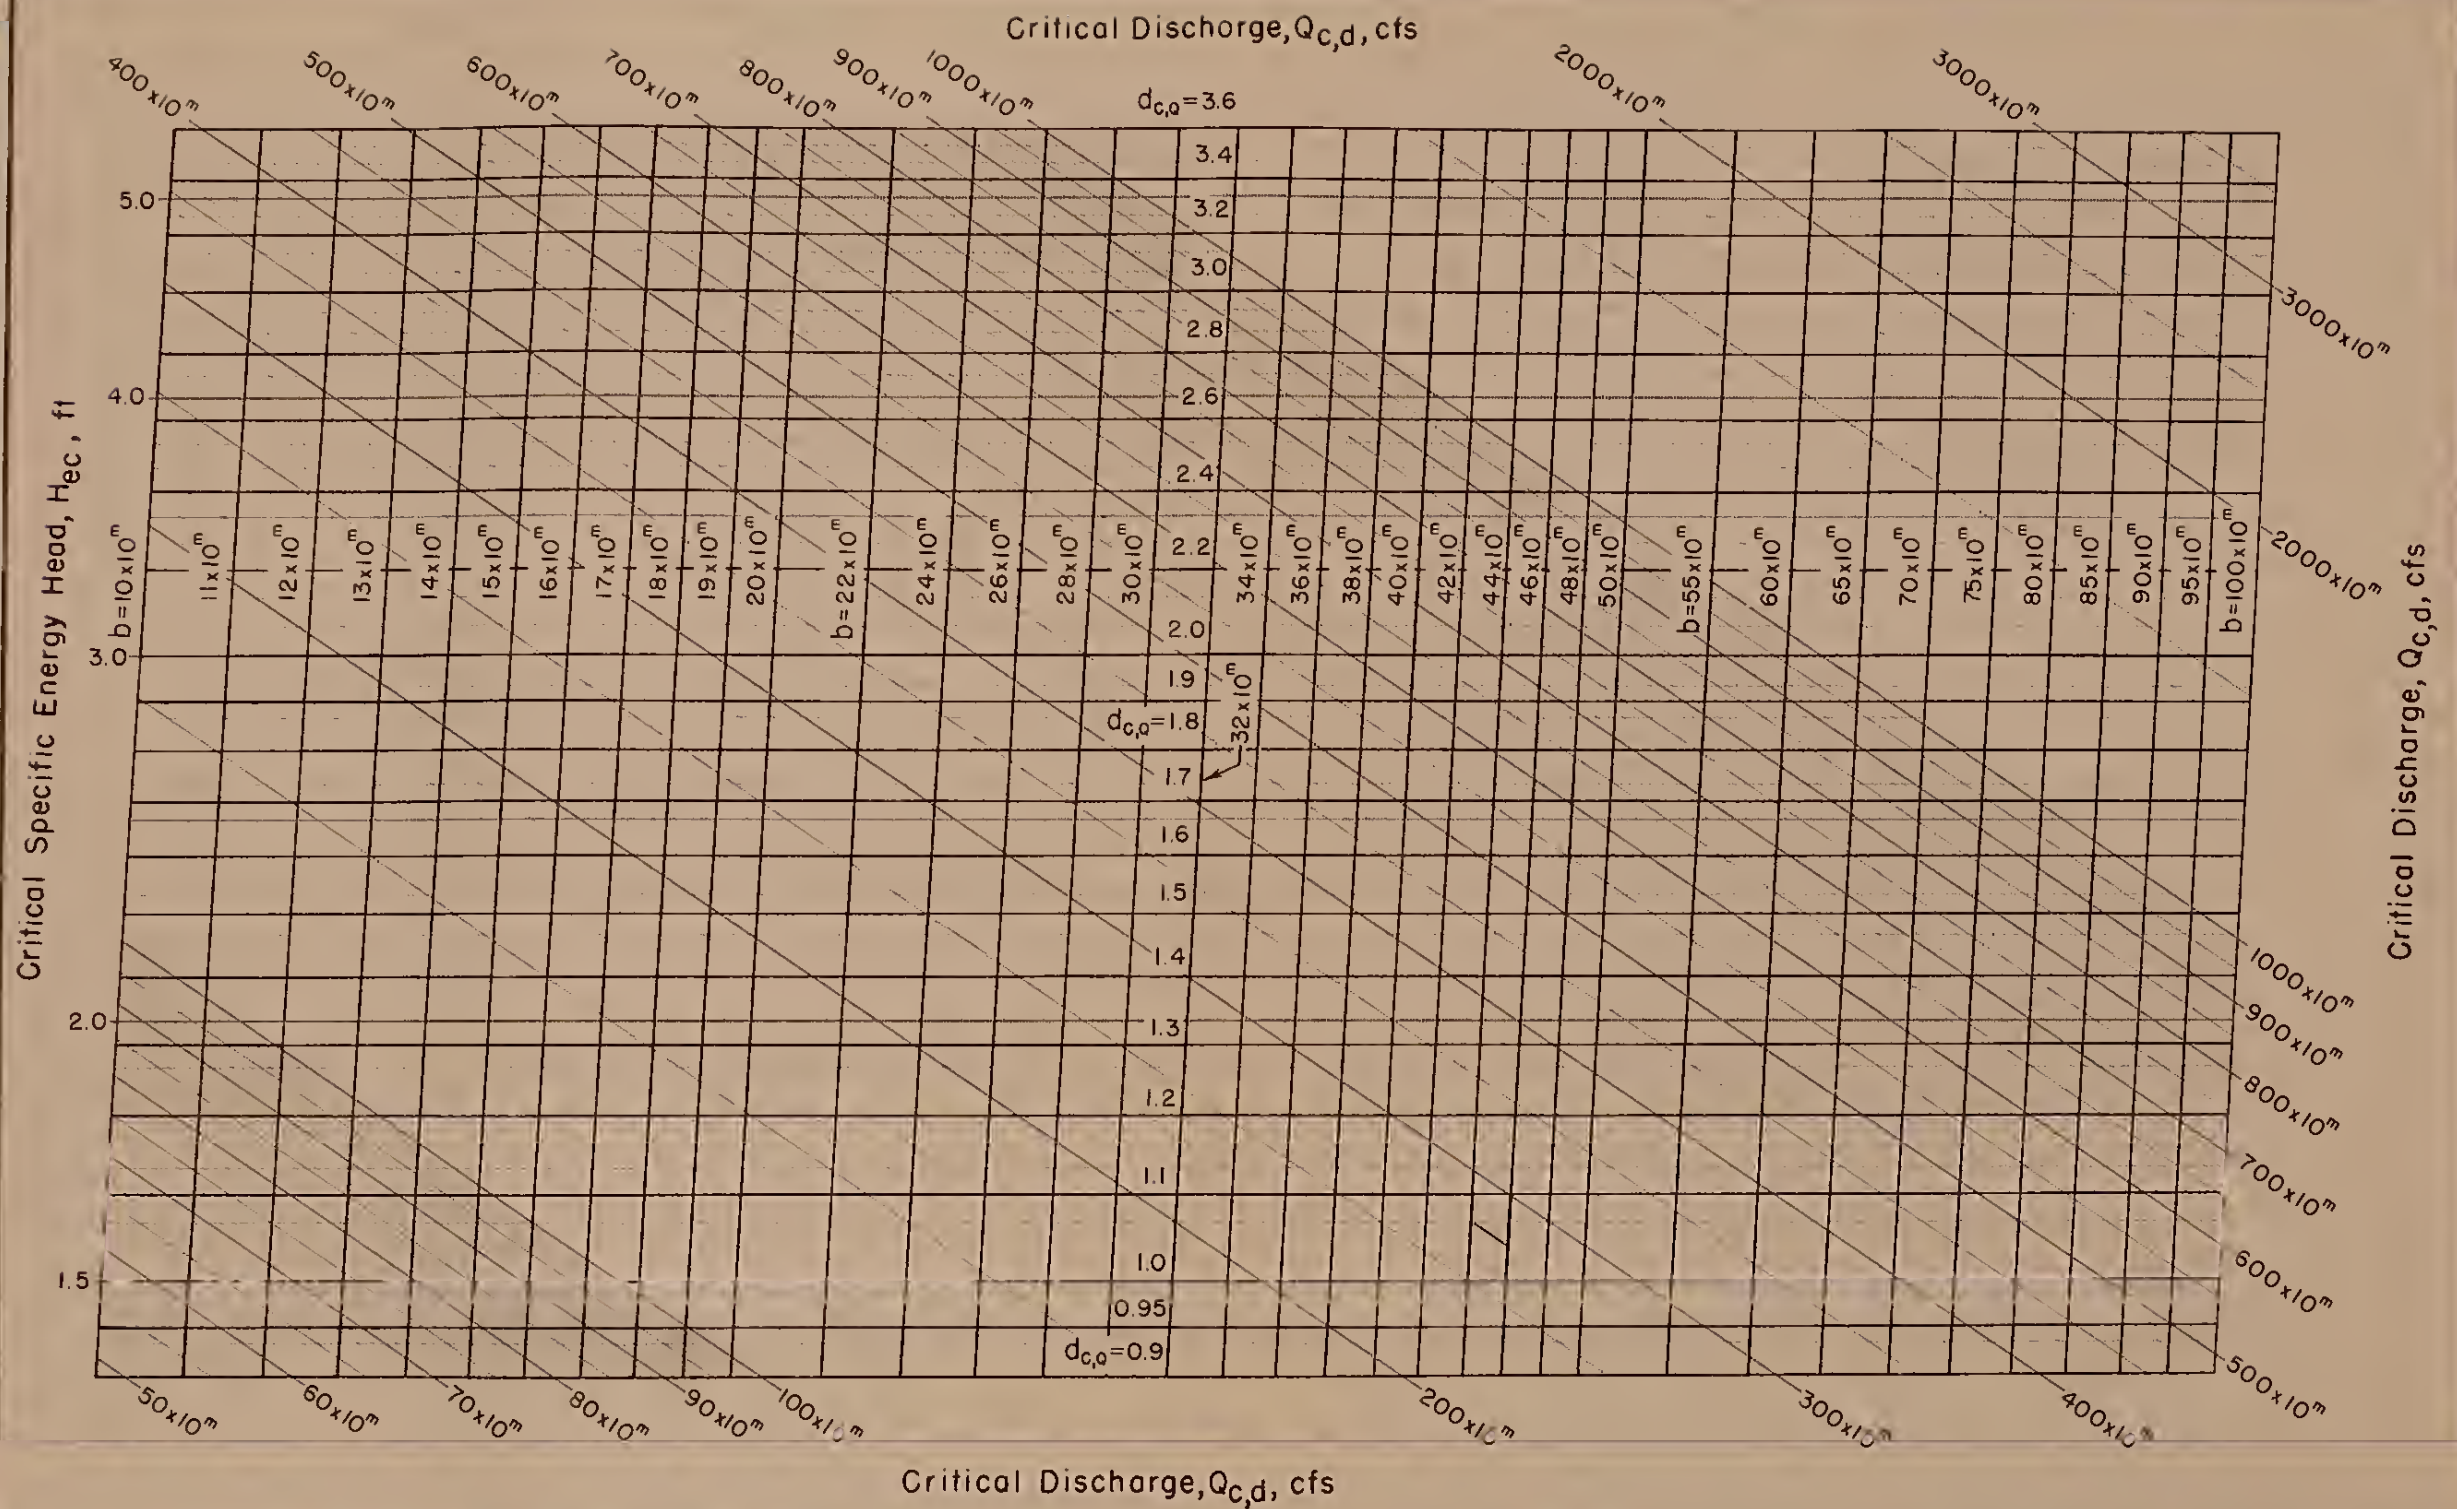 Critical Discharge, Qc,d, cfs
400x10^m
500x10^m
600x10^m
700x10^m
800x10^m
900x10^m
1000x10^m
2000x10^m
3000x10^m
dc,Q=3.6
3.4
3.2
3.0
2.8
2.6
2.4
2.2
2.0
1.9
dc,Q=1.8
1.7
1.6
1.5
1.4
1.3
1.2
1.1
1.0
0.95
dc,Q=0.9
Critical Specific Energy Head, Hec, ft
5.0
4.0
3.0
2.0
1.5
b=10x10^m
11x10^m
12x10^m
13x10^m
14x10^m
15x10^m
16x10^m
17x10^m
18x10^m
19x10^m
20x10^m
b=22x10^m
24x10^m
26x10^m
28x10^m
30x10^m
32x10^m
34x10^m
36x10^m
38x10^m
40x10^m
42x10^m
44x10^m
46x10^m
48x10^m
50x10^m
b=55x10^m
60x10^m
65x10^m
70x10^m
75x10^m
80x10^m
85x10^m
90x10^m
95x10^m
b=100x10^m
3000x10^m
2000x10^m
1000x10^m
900x10^m
800x10^m
700x10^m
600x10^m
500x10^m
Critical Discharge, Qc,d, cfs
50x10^m
60x10^m
70x10^m
80x10^m
90x10^m
100x10^m
200x10^m
300x10^m
400x10^m
Critical Discharge, Qc,d, cfs